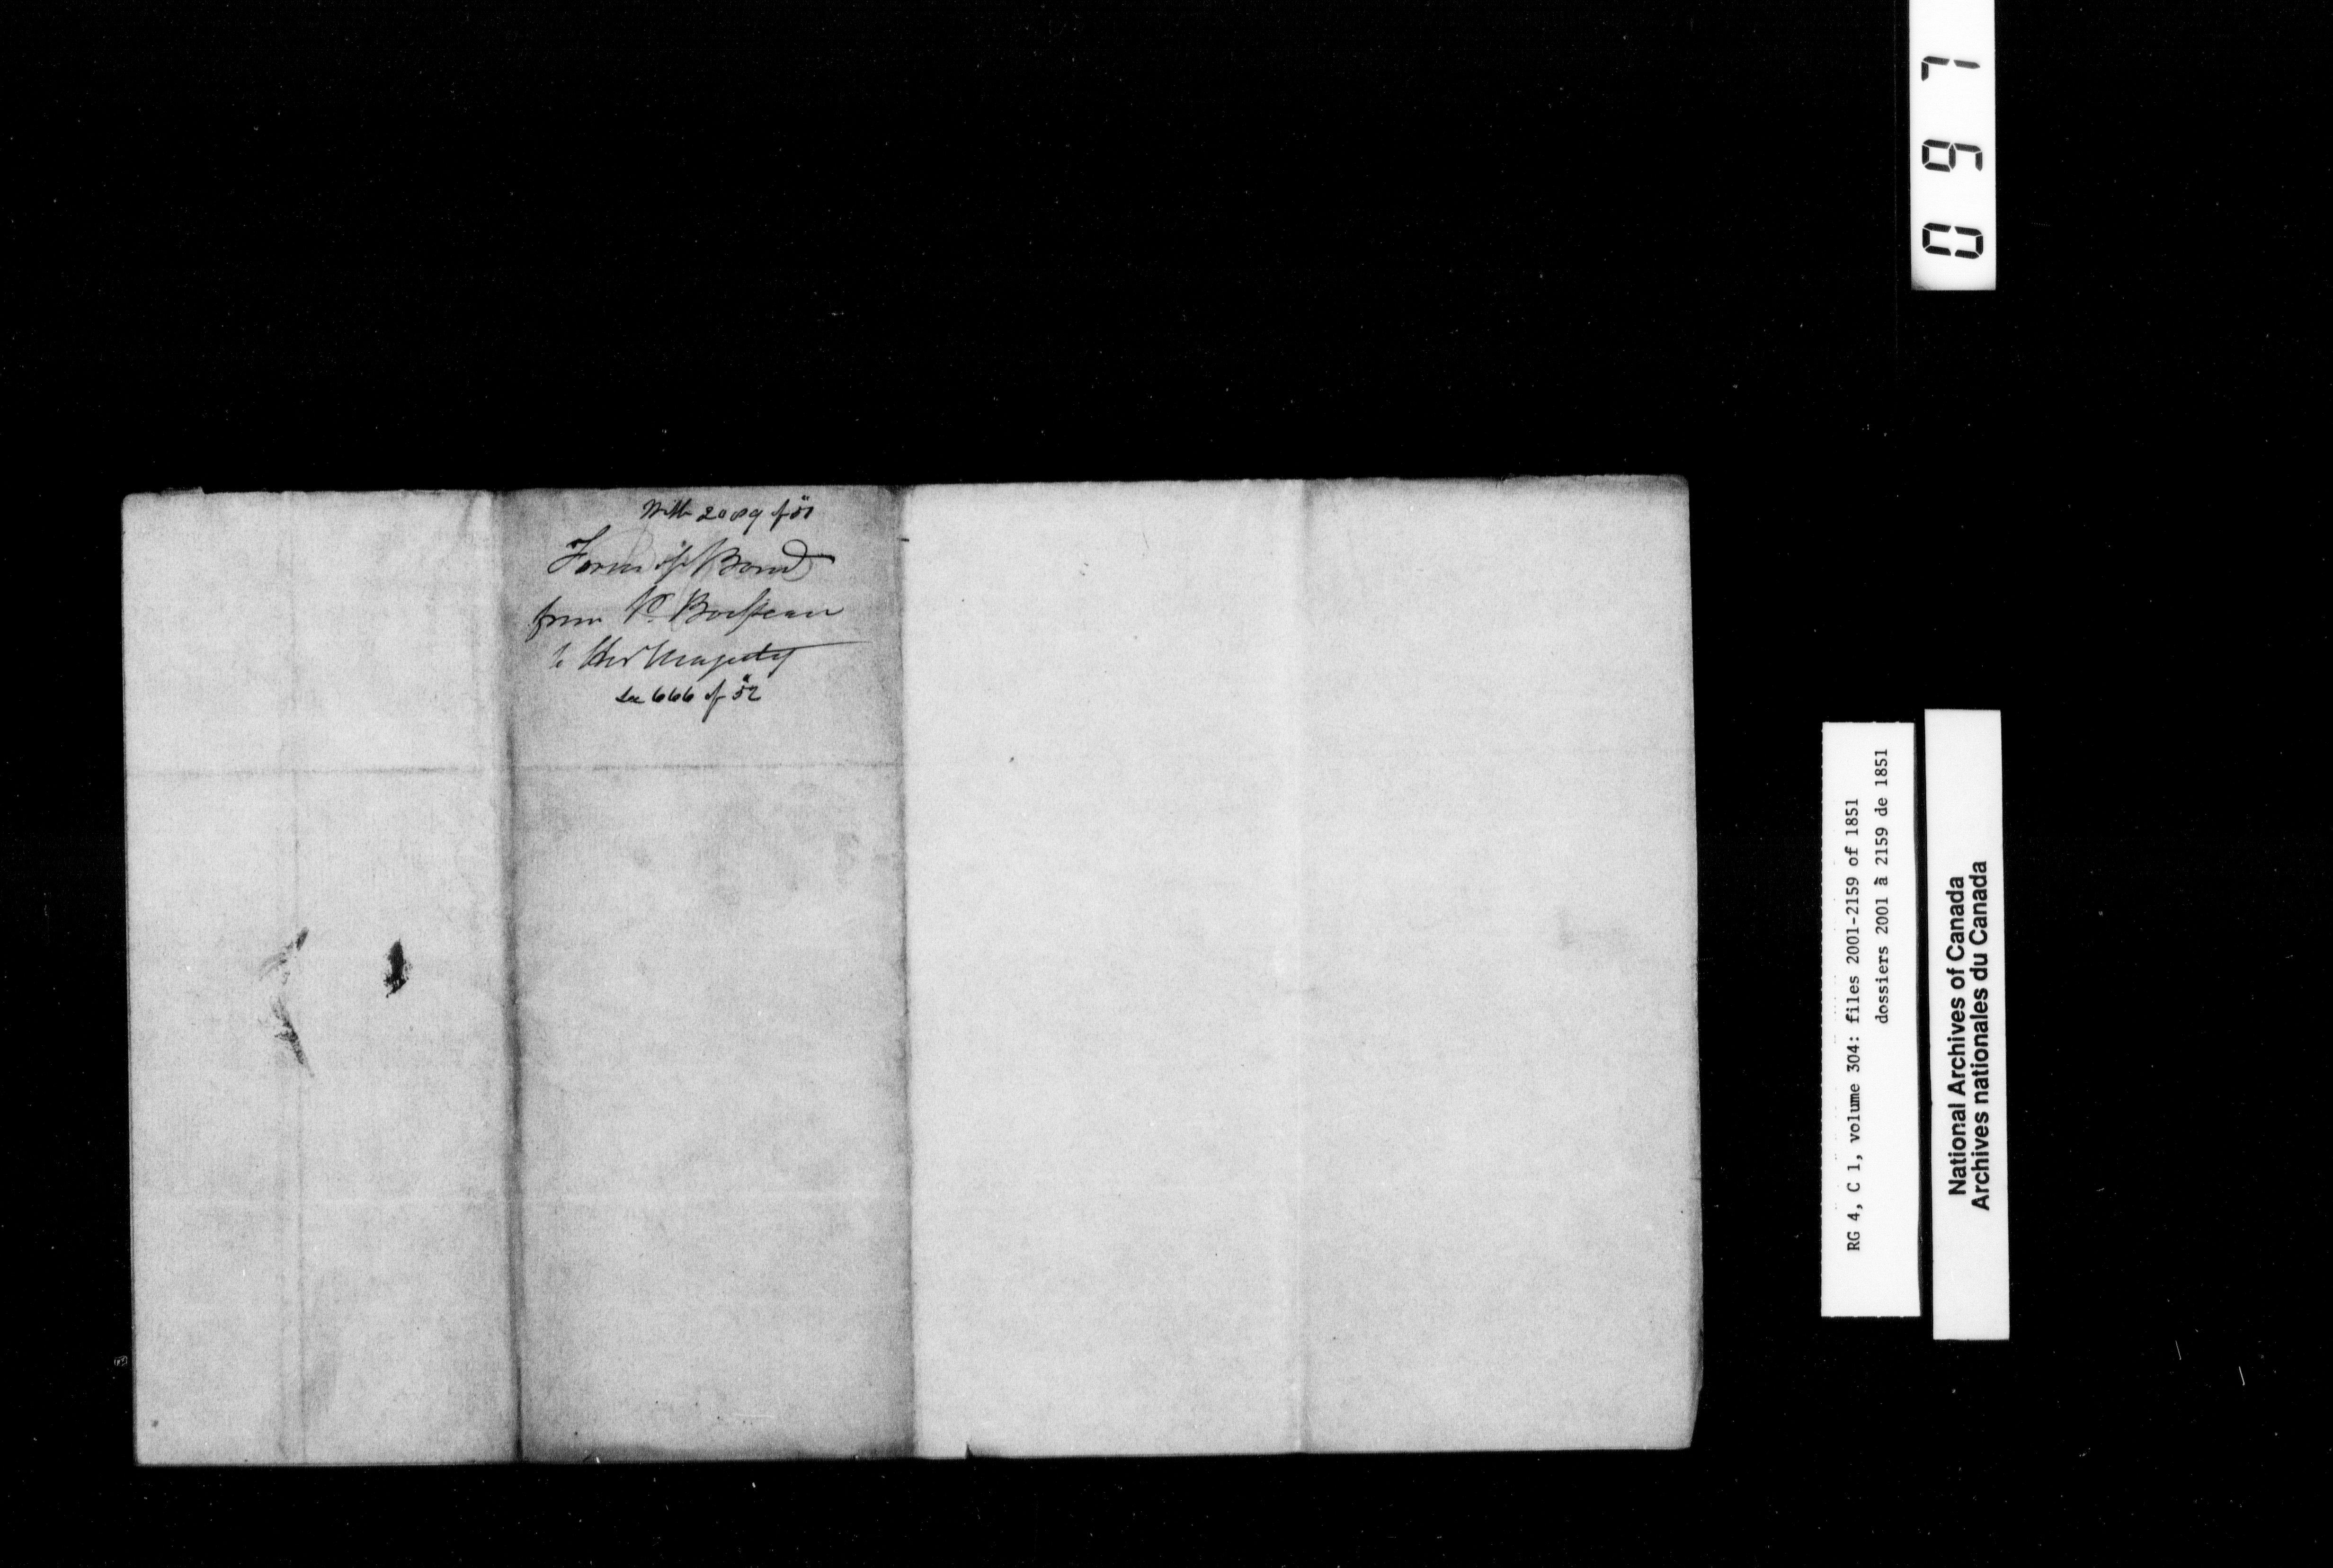 With 2089 of 51
Form of Bond
from P. Boisseau
to Her Majesty
See 666 of 52
097
RG 4, C 1, volume 304: files 2001-2159 of 1851
dossiers 2001 à 2159 de 1851
National Archives of Canada
Archives nationales du Canada